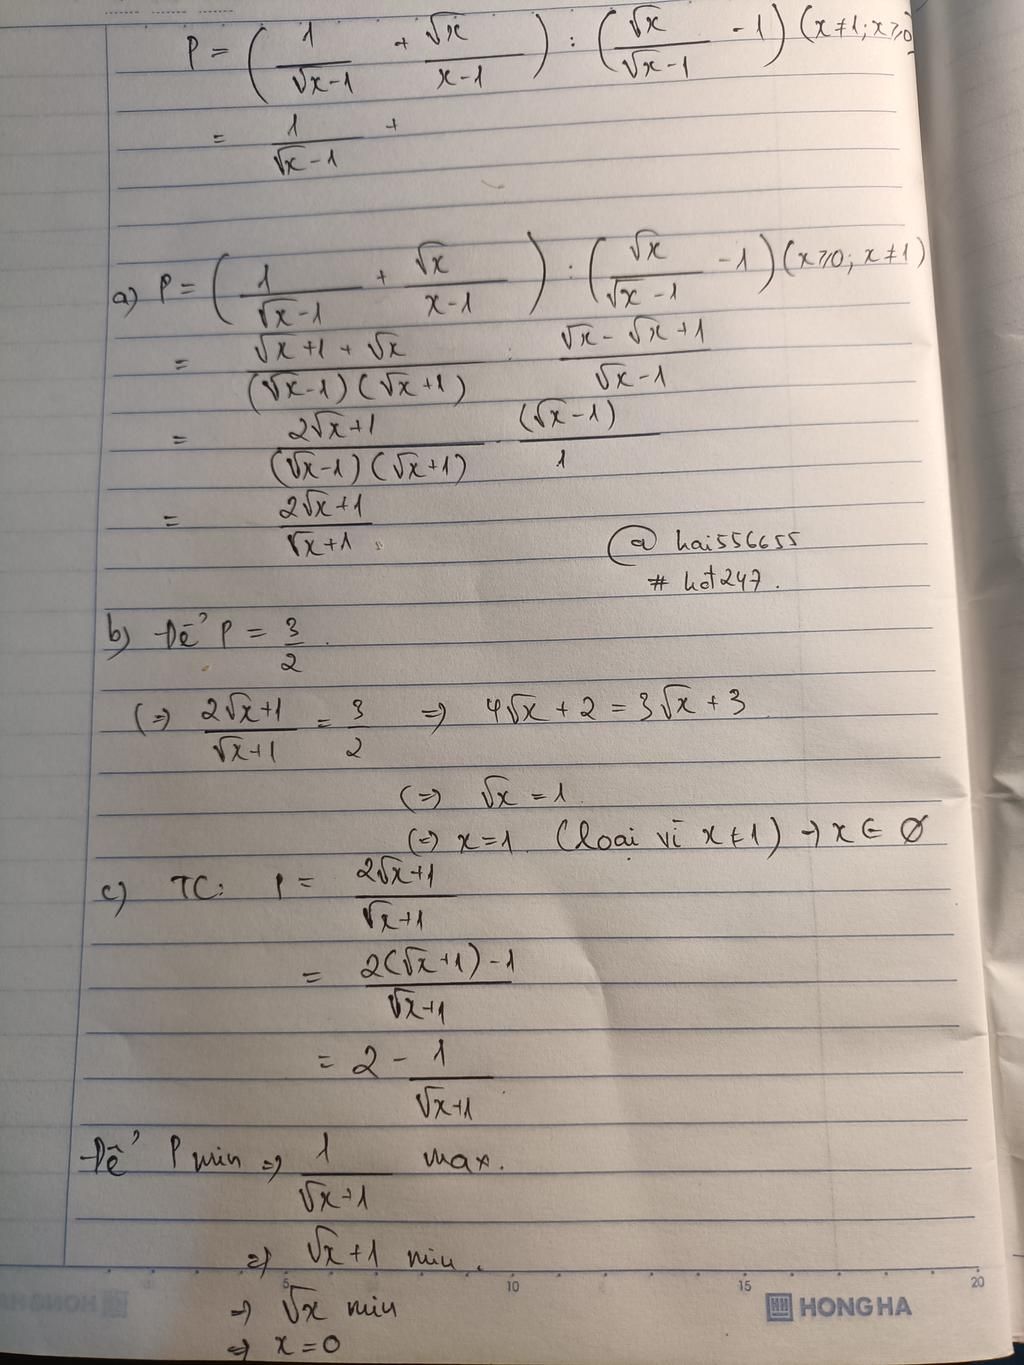 P = ( 1/(√x-1) + √x/(x-1) ) : ( √x/(√x-1) - 1 ) (x≠1; x≥0
= 1/(√x-1) +
a) P = ( 1/(√x-1) + √x/(x-1) ) : ( √x/(√x-1) - 1 ) (x≥0; x≠1)
= (√x+1+√x)/((√x-1)(√x+1)) : (√x-√x+1)/(√x-1)
= (2√x+1)/((√x-1)(√x+1)) · (√x-1)/1
= (2√x+1)/(√x+1)
@ hai556655
# hot247.
b) Để P = 3/2.
(=) (2√x+1)/(√x+1) = 3/2 => 4√x+2 = 3√x+3
(=) √x = 1
(=) x=1 (loại vì x≠1) → x ∈ Ø
c) TC: P = (2√x+1)/(√x+1)
= (2(√x+1)-1)/(√x+1)
= 2 - 1/(√x+1)
Để P min => 1/(√x+1) max.
=> √x+1 min.
=> √x min
=> x=0
5 10 15 20
HONG HA